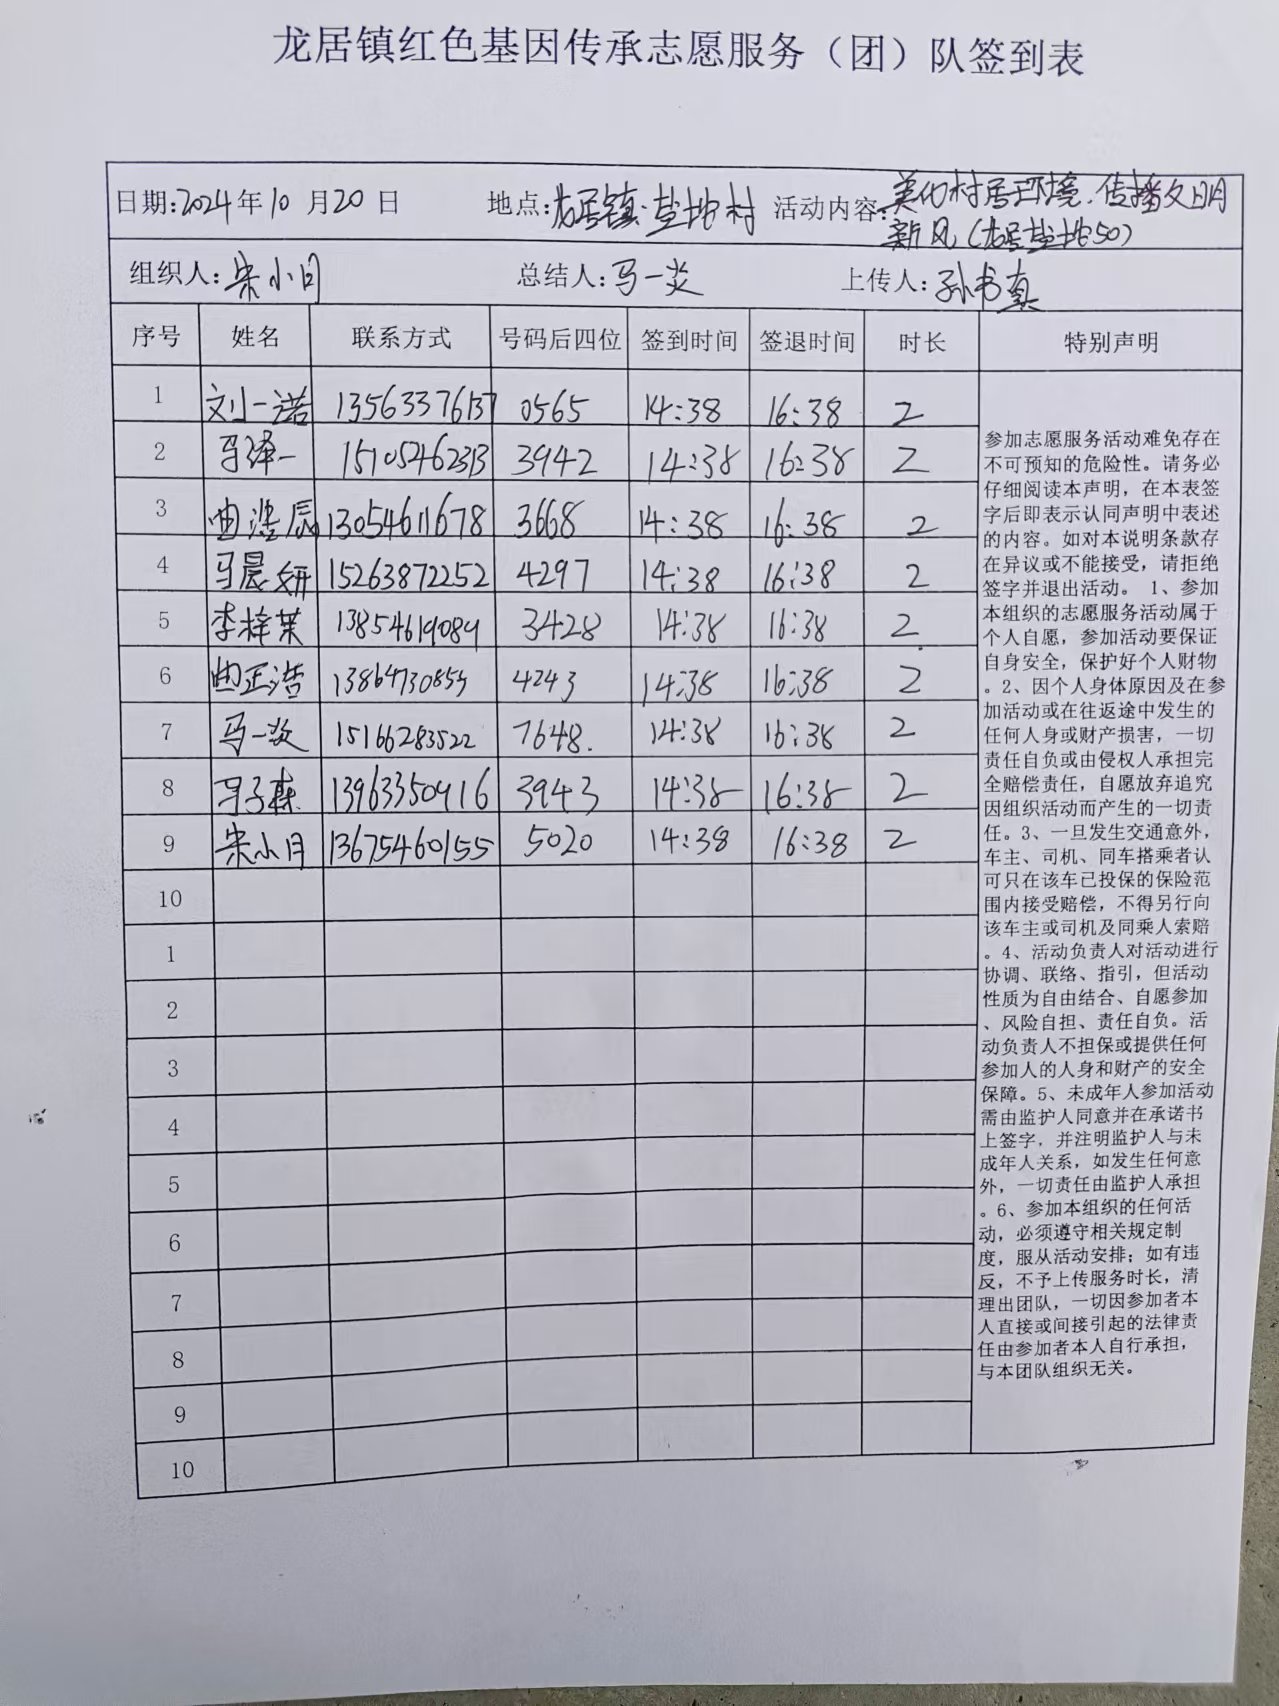 龙居镇红色基因传承志愿服务（团）队签到表
日期:2024年10月20日 地点:龙居镇·盐坨村 活动内容:美化村居环境.传播文明
新风(龙居盐坨50)
组织人:宋小月 总结人:马一炎 上传人:孙书真
序号 姓名 联系方式 号码后四位 签到时间 签退时间 时长 特别声明
1 刘一诺 13563376137 0565 14:38 16:38 2
2 马泽一 15105462313 3942 14:38 16:38 2
3 曲浩辰 13054611678 3668 14:38 16:38 2
4 马晨妍 15263872252 4297 14:38 16:38 2
5 李梓茉 13854619089 3428 14:38 16:38 2
6 曲正浩 4243 14:38 16:38 2
7 马一炎 15166283522 7648. 14:38 16:38 2
8 马子森 13963350916 3943 14:38 16:38 2
9 宋小月 13675460155 5020 14:38 16:38 2
10
1
2
3
4
5
6
7
8
9
10
参加志愿服务活动难免存在
不可预知的危险性。请务必
仔细阅读本声明，在本表签
字后即表示认同声明中表述
的内容。如对本说明条款存
在异议或不能接受，请拒绝
签字并退出活动。 1、参加
本组织的志愿服务活动属于
个人自愿，参加活动要保证
自身安全，保护好个人财物
。2、因个人身体原因及在参
加活动或在往返途中发生的
任何人身或财产损害，一切
责任自负或由侵权人承担完
全赔偿责任，自愿放弃追究
因组织活动而产生的一切责
任。3、一旦发生交通意外，
车主、司机、同车搭乘者认
可只在该车已投保的保险范
围内接受赔偿，不得另行向
该车主或司机及同乘人索赔
。4、活动负责人对活动进行
协调、联络、指引，但活动
性质为自由结合、自愿参加
、风险自担、责任自负。活
动负责人不担保或提供任何
参加人的人身和财产的安全
保障。5、未成年人参加活动
需由监护人同意并在承诺书
上签字，并注明监护人与未
成年人关系，如发生任何意
外，一切责任由监护人承担
。6、参加本组织的任何活
动，必须遵守相关规定制
度，服从活动安排；如有违
反，不予上传服务时长，清
理出团队，一切因参加者本
人直接或间接引起的法律责
任由参加者本人自行承担，
与本团队组织无关。